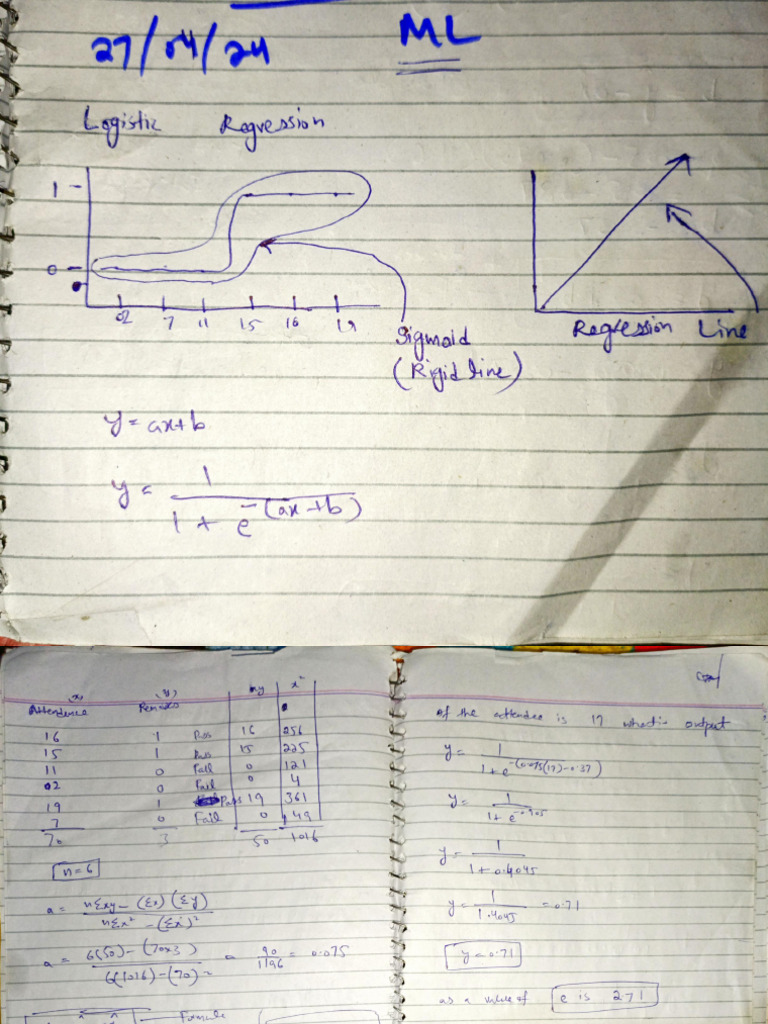 27/04/24 ML
Logistic Regression
1
0
02 7 11 15 16 19
Sigmoid
(Rigid line)
Regression Line
y = ax+b
y = 1 / 1 + e^-(ax+b)
(x) (y) xy x²
Attendence
16 1 Pass 16 256
15 1 Pass 15 225
11 0 Fail 0 121
02 0 Fail 0 4
19 1 Pass 19 361
7 0 Fail 0 49
70 3 50 1016
n = 6
a = nΣxy - (Σx)(Σy) / nΣx² - (Σx)²
a = 6(50) - (70x3) / 6(1016) - (70)² = 90 / 1196 = 0.075
Formula
of the attendee is 17 what is output
y = 1 / 1 + e^-(0.075(17)-0.37)
y = 1 / 1 + e^-0.905
y = 1 / 1 + 0.4045
y = 1 / 1.4045 = 0.71
y = 0.71
as a value of e is 2.71